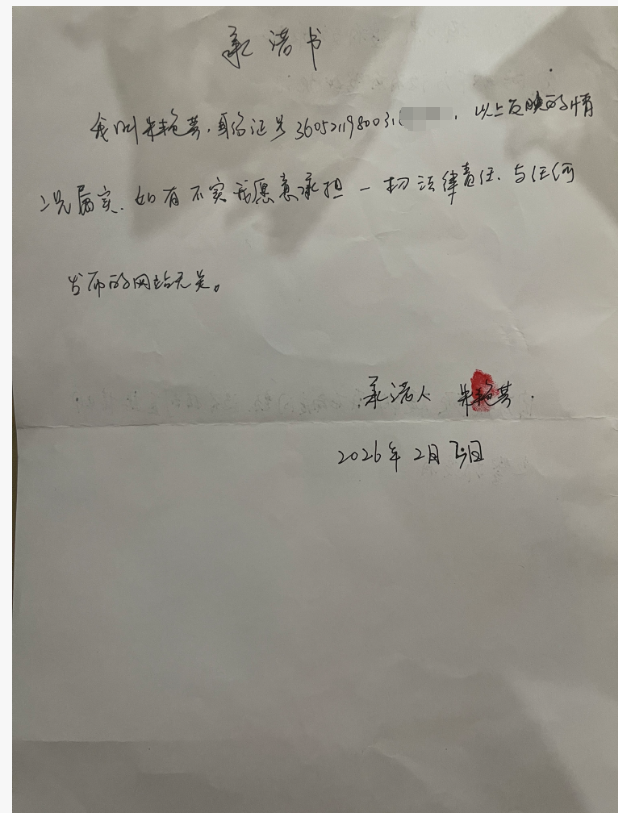 承诺书
我叫朱艳芳,身份证号3605211980031,以上反映的情
况属实.如有不实我愿意承担一切法律责任.与任何
发布的网站无关。
承诺人 朱艳芳.
2026年2月 日